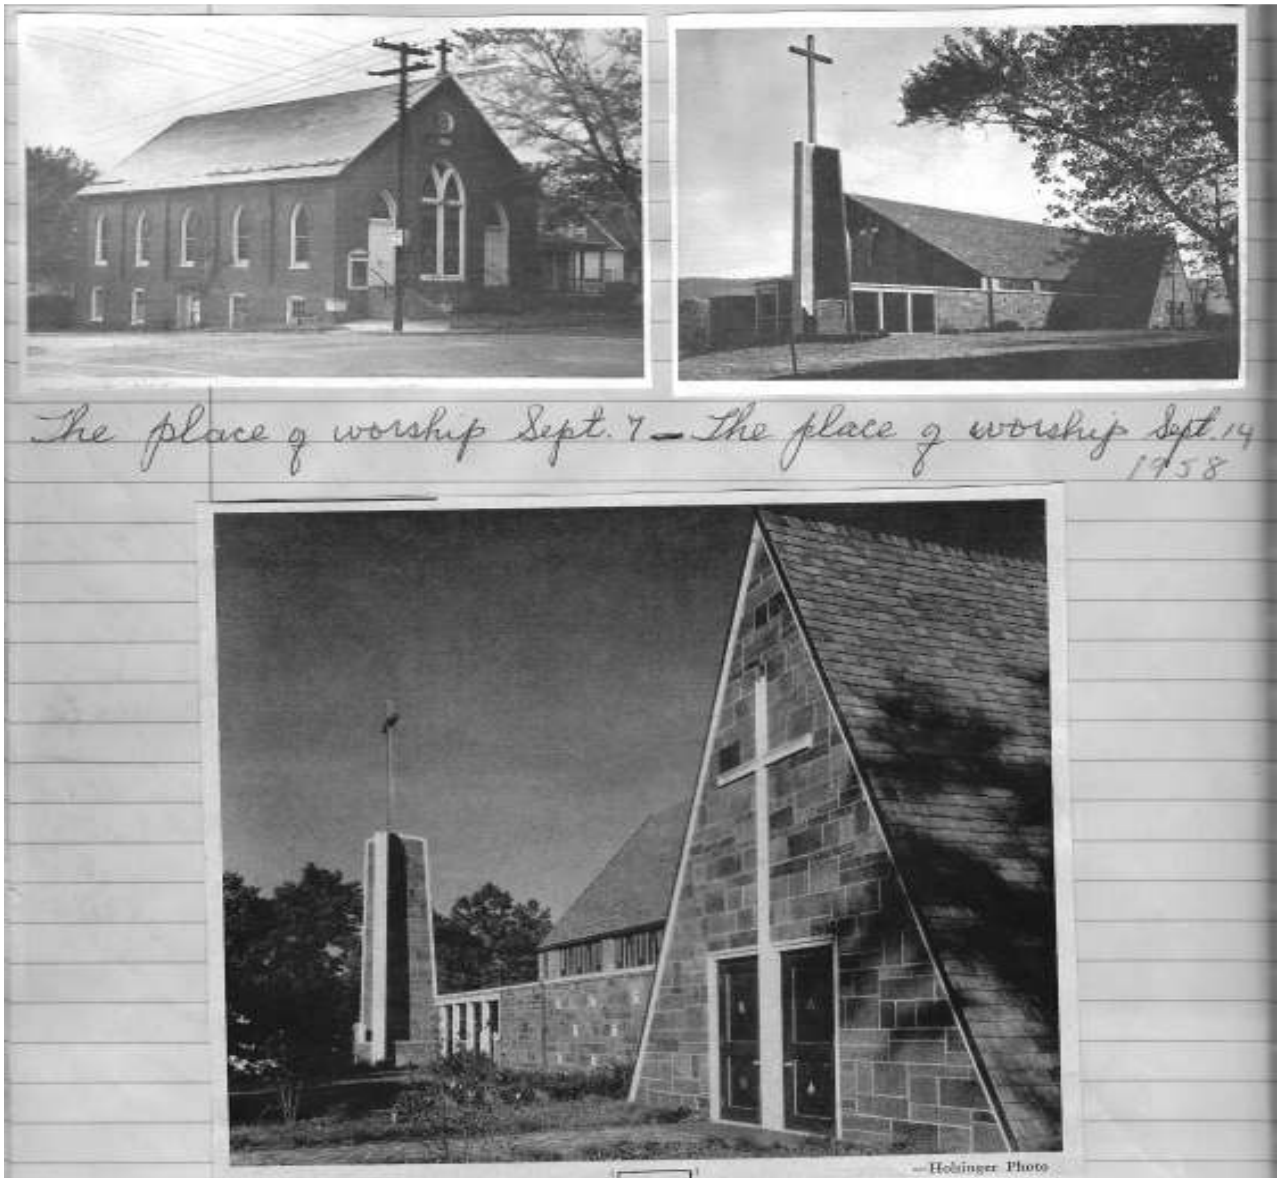 The place of worship Sept. 7 — The place of worship Sept. 14
1958
—Holsinger Photo